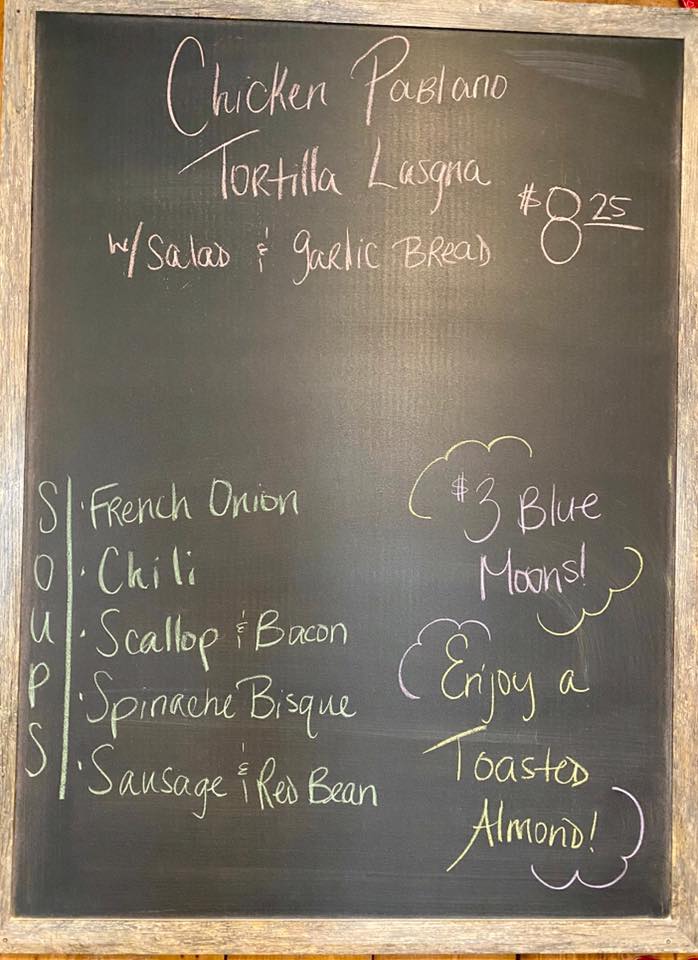 Chicken Pablano
Tortilla Lasgna
$8.25
w/ Salad & garlic Bread
SOUPS
· French Onion
· Chili
· Scallop & Bacon
· Spinache Bisque
· Sausage & Red Bean
$3 Blue
Moons!
Enjoy a
Toasted
Almond!